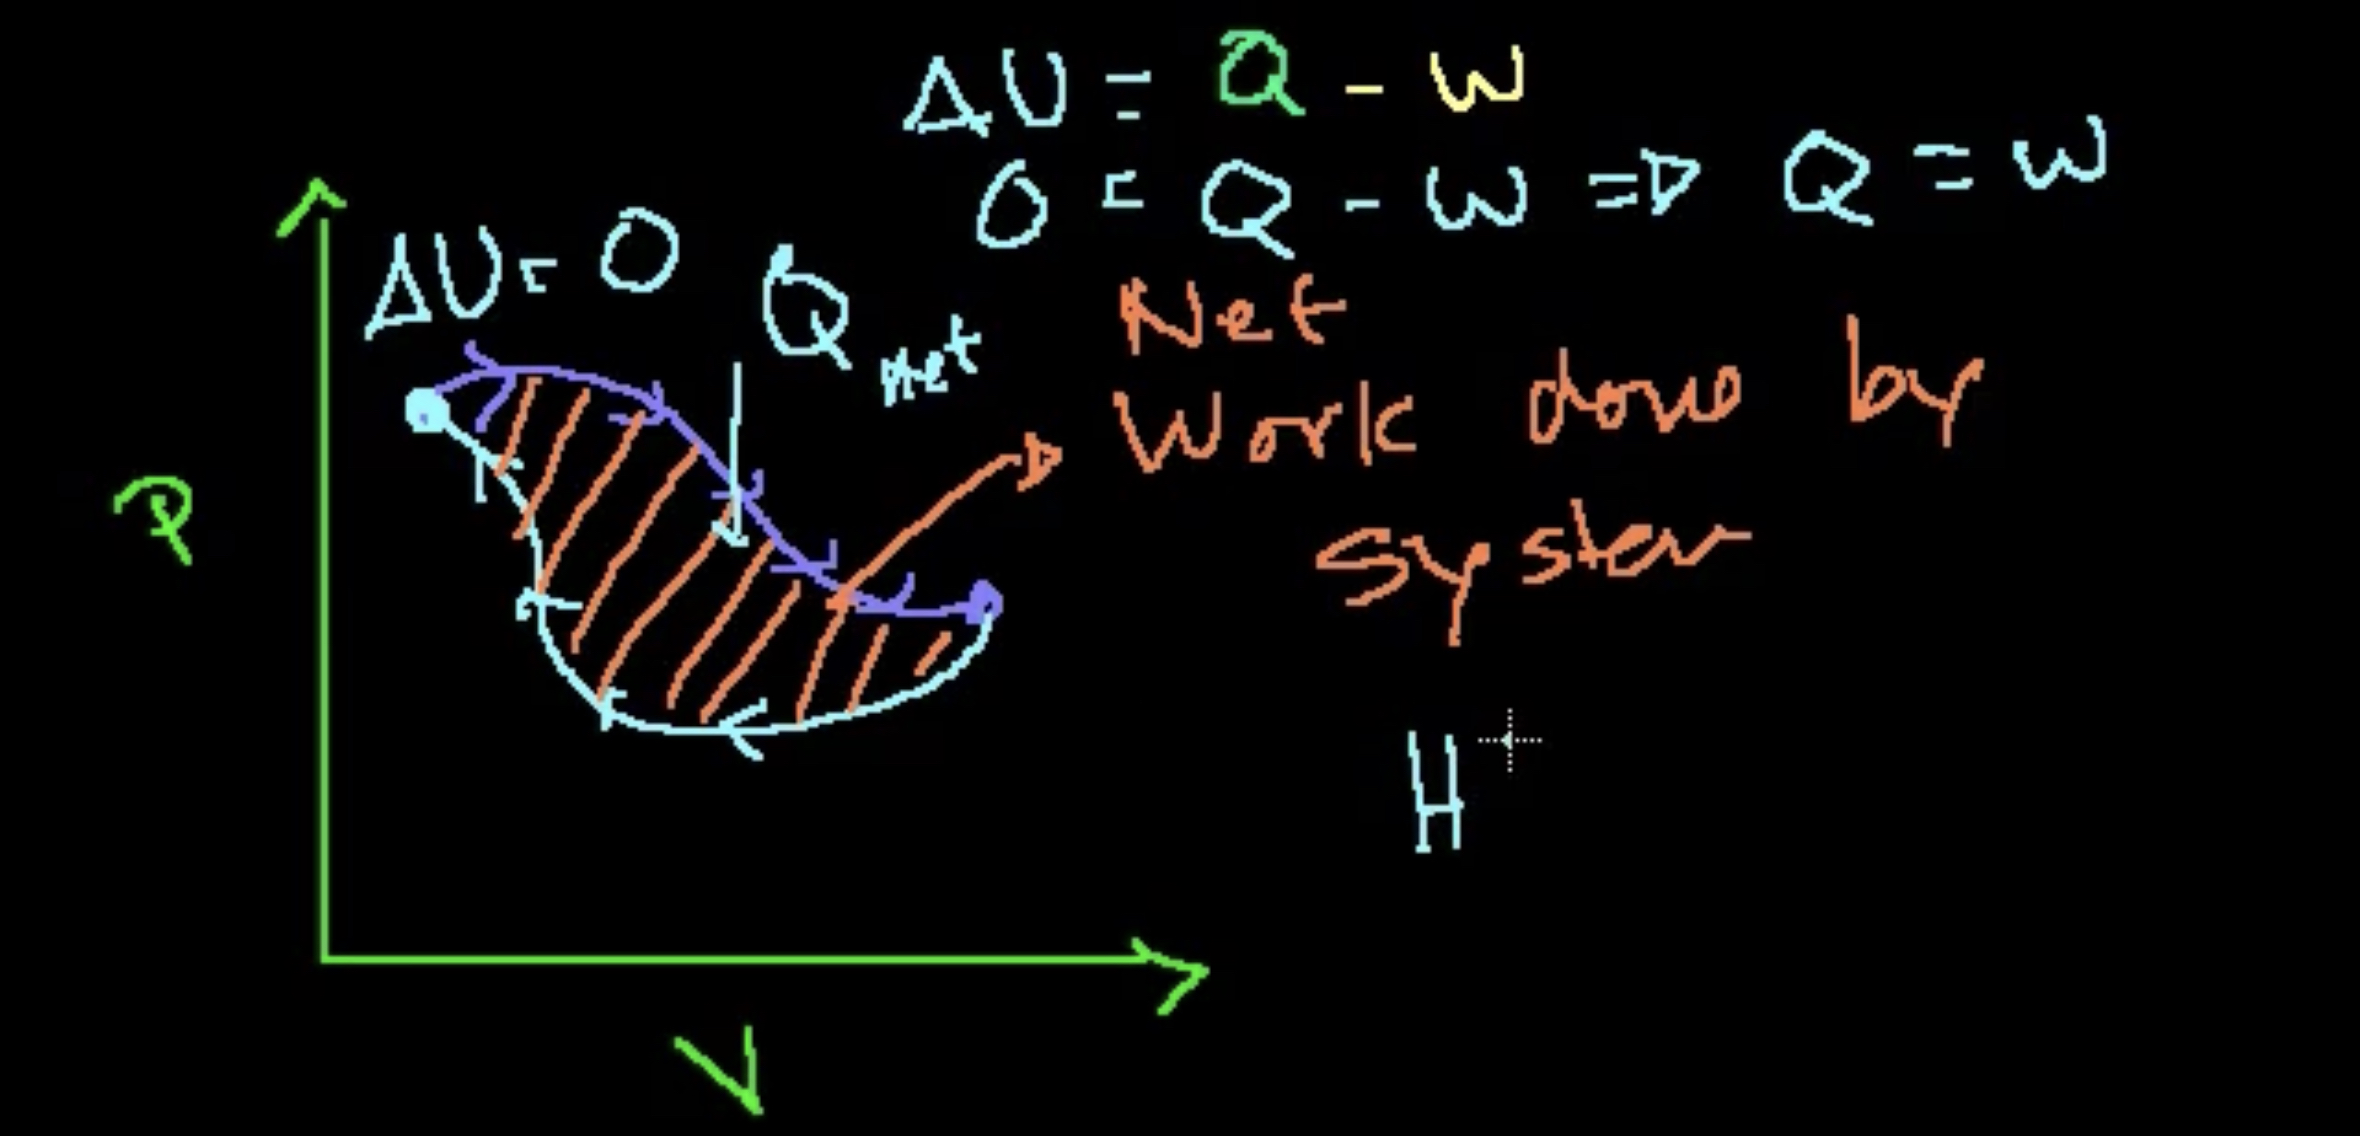 ΔU = Q - W
0 = Q - W ⇒ Q = W
ΔU = 0
Q net
Net
Work done by
system
P
H
V